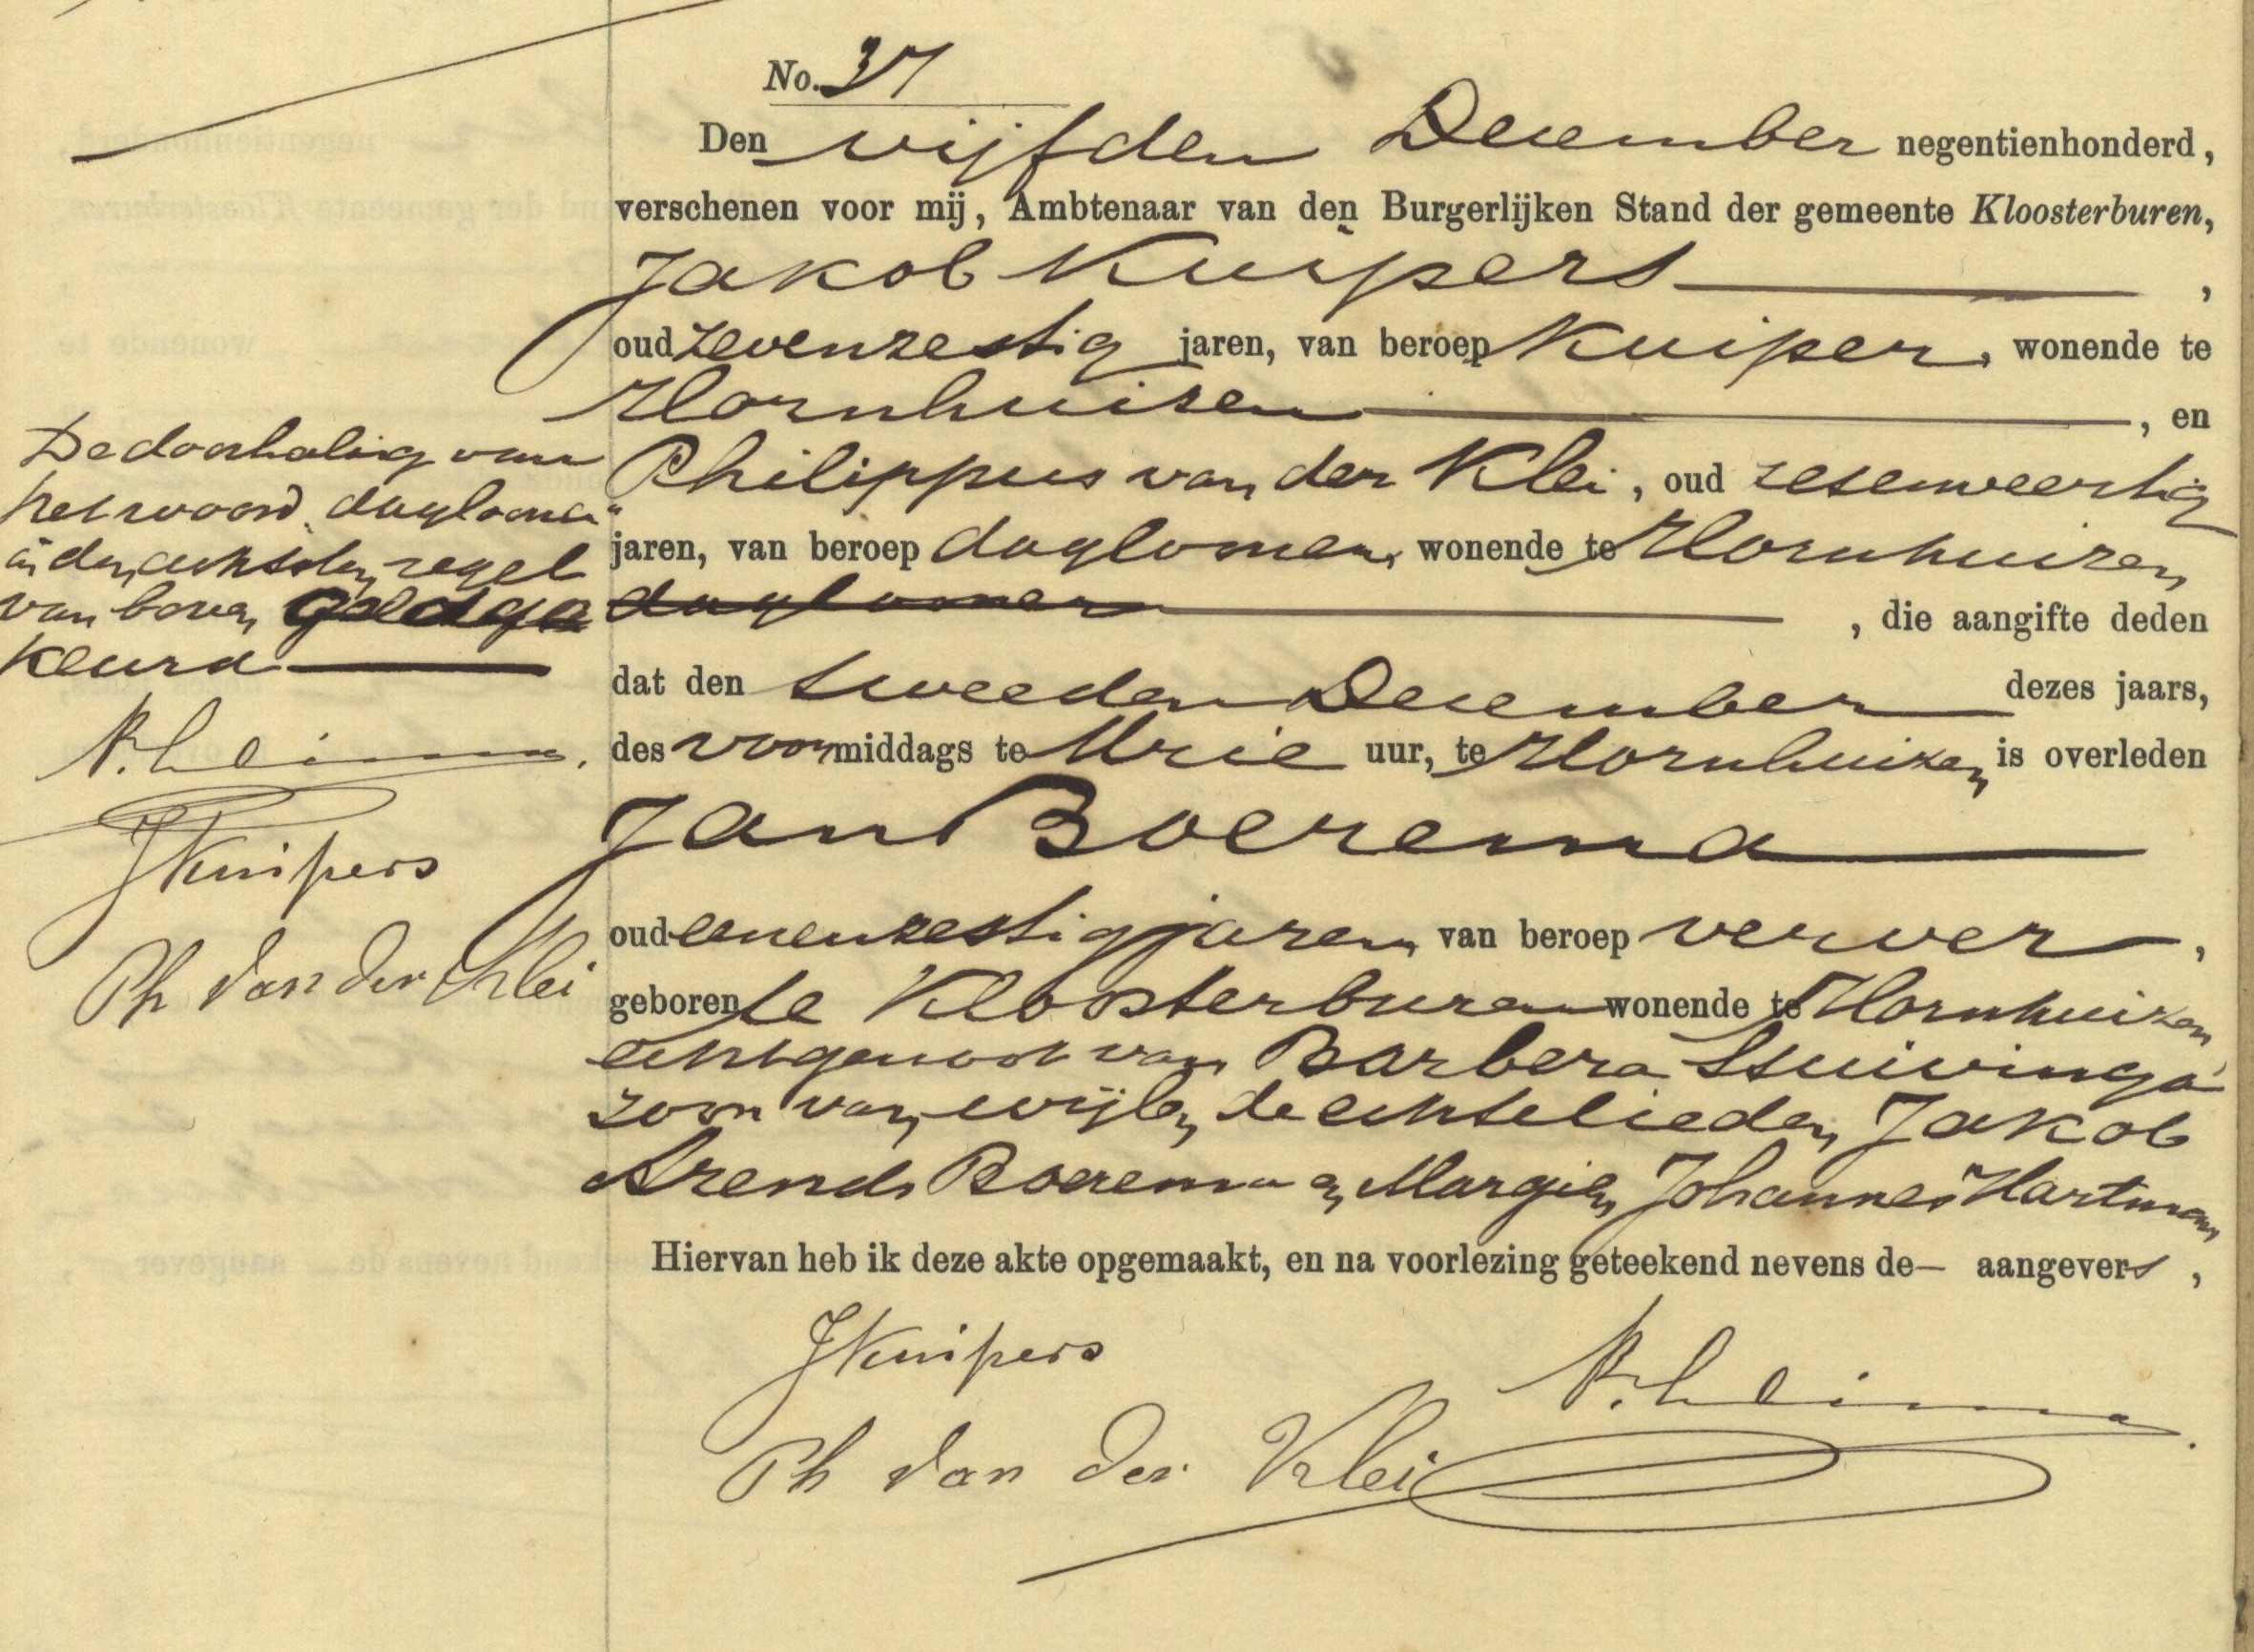 No. 37
Den vijfden December negentienhonderd,
verschenen voor mij, Ambtenaar van den Burgerlijken Stand der gemeente Kloosterburen,
Jakob Kuipers ,
oud zevenzestig jaren, van beroep Kuiper, wonende te
Hornhuizen , en
Philippus van der Klei, oud zesenveertig
jaren, van beroep dagloner, wonende te Hornhuizen
dagloner , die aangifte deden
dat den tweeden December dezes jaars,
des voormiddags te drie uur, te Hornhuizen is overleden
Jan Boerema
oud eenenzestig jaren van beroep verver ,
geboren te Kloosterburen wonende te Hornhuizen
echtgenoot van Barbera Stuivinga
zoon van wijlen de echtelieden Jakob
Arends Boerema en Margien Johannes Hartman
Hiervan heb ik deze akte opgemaakt, en na voorlezing geteekend nevens de— aangevers ,
JKuipers
Ph van der Klei
De doorhaling van
het woord "dagloner"
in den achtsten regel
van boven goedge
keurd
JKuipers
Ph van der Klei